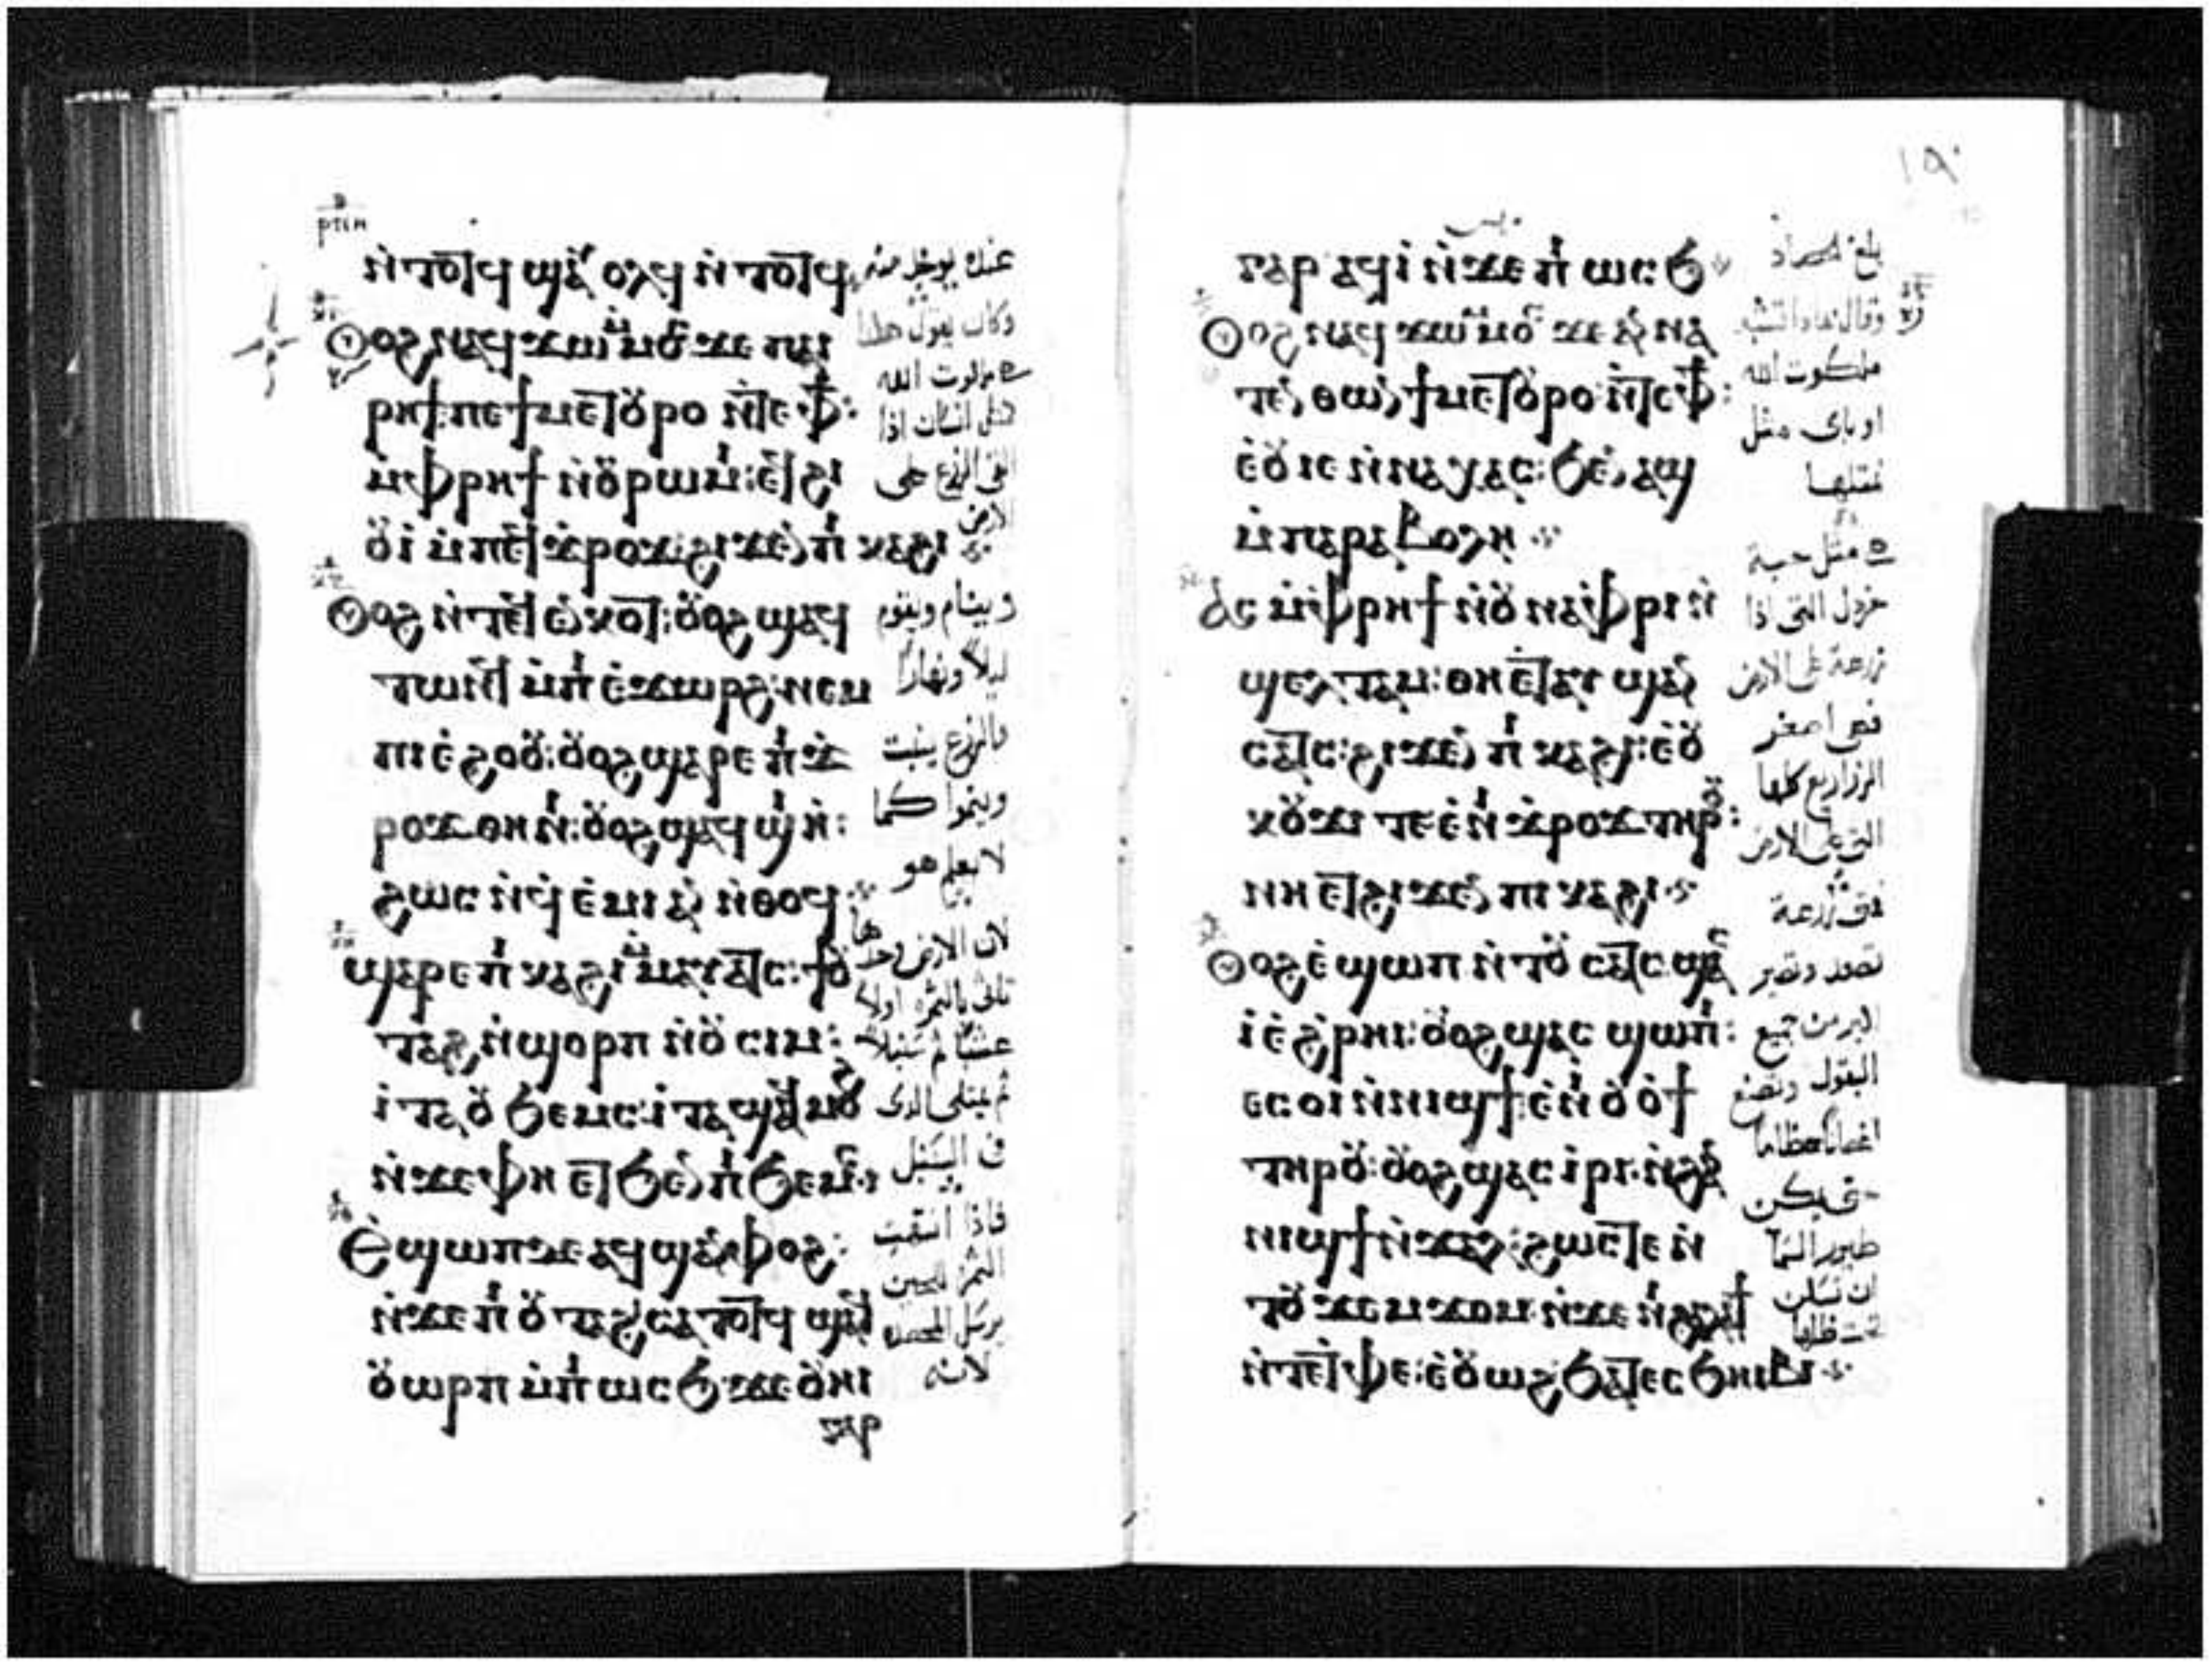 ⲛ̀ⲧⲟⲧϥ ϣⲁⲩⲟⲗϥ ⲛ̀ⲧⲟⲧϥ
Ⲟⲩⲟϩ ⲛⲁϥϫⲱ ⲙ̀ⲙⲟⲥ ϫⲉ ⲡⲁⲓ
ⲣⲏϯ ⲡⲉ ϯⲙⲉⲧⲟⲩⲣⲟ ⲛ̀ⲧⲉ ⲫϯ:
ⲙ̀ⲫⲣⲏϯ ⲛ̀ⲟⲩⲣⲱⲙⲓ: ⲉⲧϩⲓ
ⲟⲩⲓ̀ ⲙ̀ⲡⲉϥϫⲣⲟϫ ϩⲓϫⲉⲛ ⲡⲓⲕⲁϩⲓ
Ⲟⲩⲟϩ ⲛ̀ⲧⲉϥⲉⲛⲕⲟⲧ: ⲟⲩⲟϩ ϣⲁϥ
ⲧⲱⲛϥ ⲙ̀ⲡⲓⲉ̀ϫⲱⲣϩ: ⲛⲉⲙ
ⲡⲓⲉ̀ϩⲟⲟⲩ: ⲟⲩⲟϩ ϣⲁⲣⲉ ⲡⲓϫ
ⲣⲟϫ ⲟⲩⲟϩ ϣⲁϥ
ϩⲱⲥ ⲛ̀ϥⲉ̀ⲙⲓ ⲁⲛ ⲛ̀ⲑⲟϥ
ϣⲁⲣⲉ ⲡⲓⲕⲁϩⲓ ⲙ̀ⲙⲁⲩⲁⲧϥ: ϯⲟⲩ
ⲧⲁϩ ⲛ̀ϣⲟⲣⲡ ⲛ̀ⲟⲩⲥⲓⲙ:
ⲓⲧⲁ ⲟⲩϧⲉⲙⲥ: ⲓⲧⲁ ϣⲁϥⲙⲟϩ
ⲛ̀ϫⲉ ⲫⲏ ⲉⲧϧⲉⲛ ⲡⲓϧⲉⲙⲥ
Ⲉϣⲱⲡ ⲇⲉ ⲁϥϣⲁⲛⲫⲟϩ:
ⲛ̀ϫⲉ ⲡⲓⲟⲩⲧⲁϩ ⲥⲁⲧⲟⲧϥ ϣⲁϥ
ⲟⲩⲱⲣⲡ ⲙ̀ⲡⲓⲱⲥϧ ϫⲉ ⲟⲩⲏⲓ
ⲅⲁⲣ
عنده يوخذ منه
وكان يقول هكذا
ملكوت الله
مثل انسان اذا
القى الزرع على
الارض
وينام ويقوم
ليلاً ونهاراً
والزرع ينبت
وينموا كما
لا يعلم هو
لان الارض وحدها
تاتى بالثمرة اولاً
عشباً ثم سنبلاً
ثم يمتلى الذى
فى السنبل
فاذا
لانه
١٩٠
ⲅⲁⲣ ⲁϥⲓ̀ ⲛ̀ϫⲉ ⲡⲓⲱⲥϧ
Ⲟⲩⲟϩ ⲛⲁϥϫⲱ ⲙ̀ⲙⲟⲥ ϫⲉ ⲁⲛⲛⲁ
ⲧⲉⲛⲑⲱⲛ ϯⲙⲉⲧⲟⲩⲣⲟ ⲛ̀ⲧⲉ ⲫϯ:
ⲉ̀ⲟⲩ ⲓⲉ ⲛ̀ⲛⲁⲭⲁⲥ: ϧⲉⲛ ⲁϣ
ⲙ̀ⲡⲁⲣⲁⲃⲟⲗⲏ
Ⲁⲥ ⲙ̀ⲫⲣⲏϯ ⲛ̀ⲟⲩⲛⲁⲫⲣⲓ ⲛ̀
ϣⲉⲗⲧⲁⲙ: ⲑⲏ ⲉ̀ⲧⲁⲩϣⲁⲛ
ⲥⲁⲧⲥ: ϩⲓϫⲉⲛ ⲡⲓⲕⲁϩⲓ: ⲉⲟⲩ
ⲕⲟⲩϫⲓ ⲧⲉ ⲉ̀ⲛⲓϫⲣⲟϫ ⲧⲏⲣⲟⲩ:
ⲛⲏ ⲉⲧϩⲓϫⲉⲛ ⲡⲓⲕⲁϩⲓ
Ⲟⲩⲟϩ ⲉ̀ϣⲱⲡ ⲛ̀ⲧⲟⲩⲥⲁⲧⲥ ϣⲁⲥ
ⲓ̀ ⲉ̀ϩⲣⲏⲓ: ⲟⲩⲟϩ ϣⲁⲥϣⲱⲡⲓ:
ⲉⲥⲟⲓ ⲛ̀ⲛⲓϣϯ: ⲉ̀ⲛⲓⲟⲩⲟϯ
ⲧⲏⲣⲟⲩ: ⲟⲩⲟϩ ϣⲁⲥⲓ̀ⲣⲓ ⲛ̀ϩⲁⲛ
ⲛⲓϣϯ ⲛ̀ϫⲁⲗ: ϩⲱⲥⲧⲉ ⲛ̀
ⲧⲟⲩϫⲉⲙϫⲟⲙ ⲛ̀ϫⲉ ⲛⲓϩⲁⲗⲁϯ
ⲛ̀ⲧⲉ ⲧⲫⲉ: ⲉ̀ⲟⲩⲱϩ ϧⲁ ⲧⲉⲥϧⲏⲓⲃⲓ
بلغ الحصاد
ملكوت الله
او باى مثل
نمثلها
مثل حبة
خردل التى اذا
زرعت على الارض
فهى اصغر
الزراريع كلها
التى على الارض
تصعد وتصير
اكبر من جميع
البقول وتصنع
اغصاناً عظاماً
طيور السما
ان تسكن
تحت ظلها